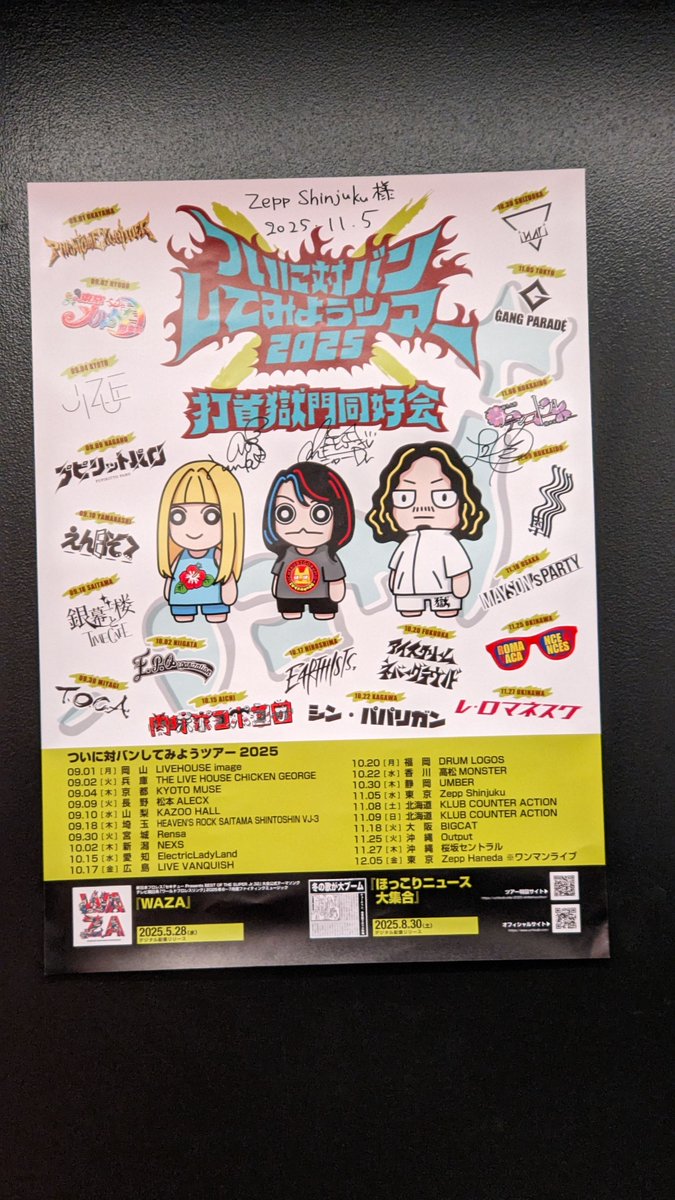 Zepp Shinjuku 様
2025.11.5
ついに対バン
してみようツアー
2025
打首獄門同好会
09.01 OKAYAMA
09.02 HYOGO
09.04 KYOTO
09.09 NAGANO
プピリットパロ
09.10 YAMANASHI
えんそく
09.18 SAITAMA
銀幕楼
TIMECAFE
09.30 MIYAGI
T.O.C.A
10.02 NIIGATA
E.P.Corporation
10.15 AICHI
10.17 HIROSHIMA
EARTHISTS.
10.20 FUKUOKA
アイスクリーム
ネバーグラウンド
10.22 KAGAWA
シン・パパリガン
10.30 SHIZUOKA
11.05 TOKYO
GANG PARADE
11.08 HOKKAIDO
11.09 HOKKAIDO
11.18 OSAKA
MAYSON's PARTY
11.25 OKINAWA
ROMA NCE
VACA NCES
11.27 OKINAWA
レ・ロマネスク
獄
ついに対バンしてみようツアー 2025
09.01 [月] 岡 山 LIVEHOUSE image
09.02 [火] 兵 庫 THE LIVE HOUSE CHICKEN GEORGE
09.04 [木] 京 都 KYOTO MUSE
09.09 [火] 長 野 松本 ALECX
09.10 [水] 山 梨 KAZOO HALL
09.18 [木] 埼 玉 HEAVEN'S ROCK SAITAMA SHINTOSHIN VJ-3
09.30 [火] 宮 城 Rensa
10.02 [木] 新 潟 NEXS
10.15 [水] 愛 知 ElectricLadyLand
10.17 [金] 広 島 LIVE VANQUISH
10.20 [月] 福 岡 DRUM LOGOS
10.22 [水] 香 川 高松 MONSTER
10.30 [木] 静 岡 UMBER
11.05 [水] 東 京 Zepp Shinjuku
11.08 [土] 北海道 KLUB COUNTER ACTION
11.09 [日] 北海道 KLUB COUNTER ACTION
11.18 [火] 大 阪 BIGCAT
11.25 [火] 沖 縄 Output
11.27 [木] 沖 縄 桜坂セントラル
12.05 [金] 東 京 Zepp Haneda ※ワンマンライブ
WAZA
『WAZA』
2025.5.28(水)
デジタル配信リリース
冬の歌が大ブーム
『ほっこりニュース
大集合』
2025.8.30(土)
デジタル配信リリース
ツアー特設サイト▶
オフィシャルサイト▶